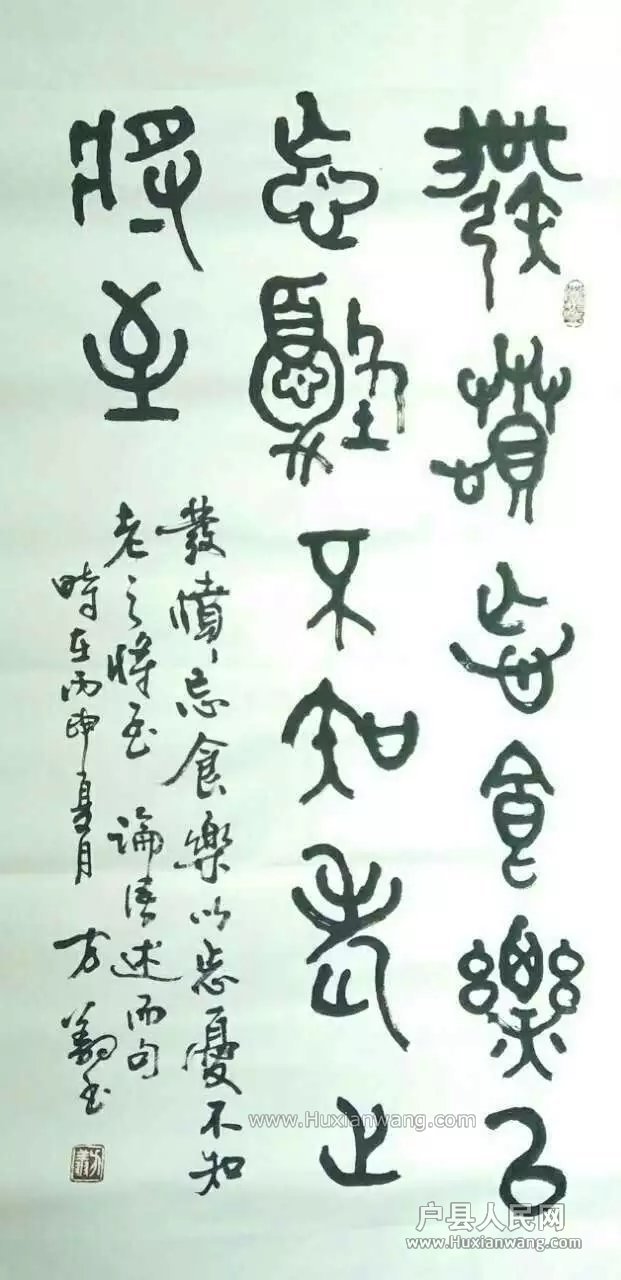 發憤忘食樂以
忘憂不知老之
將至
發憤忘食樂以忘憂不知
老之將至 論語述而句
時在丙申夏月 方
www.Huxianwang.com
户县人民网
www.Huxianwang.com